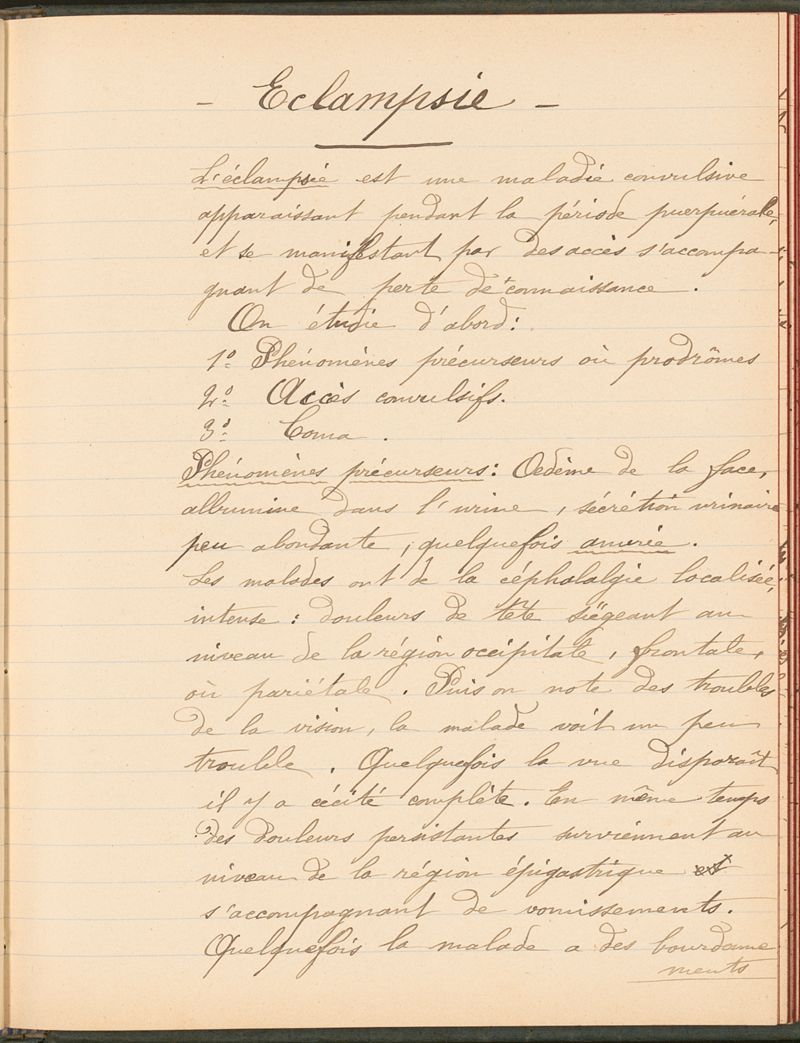 - Eclampsie -
L'éclampsie est une maladie convulsive
apparaissant pendant la période puerpuérale,
et se manifestant par des accès s'accompa-
gnant de perte de connaissance.
On étudie d'abord:
1º Phénomènes précurseurs où prodrômes
2º Accès convulsifs.
3º Coma.
Phénomènes précurseurs: Oedème de la face,
albumine dans l'urine, sécrétion urinaire
peu abondante, quelquefois anurie.
Les malades ont de la céphalalgie localisée,
intense: douleurs de tête siégeant au
niveau de la région occipitale, frontale,
où pariétale. Puis on note des troubles
de la vision, la malade voit un peu
trouble. Quelquefois la vue disparaît
il y a cécité complète. En même temps
des douleurs persistantes surviennent au
niveau de la région épigastrique et
s'accompagnant de vomissements.
Quelquefois la malade a des bourdonne
ments